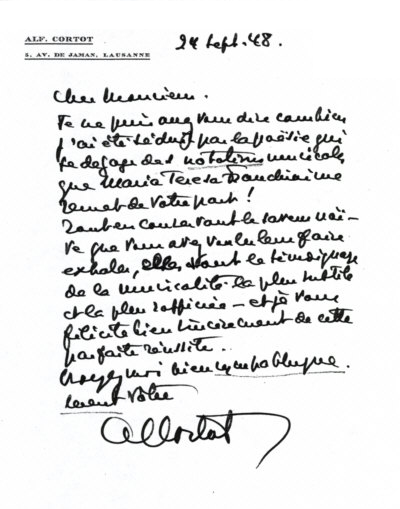 ALF. CORTOT
5, AV. DE JAMAN, LAUSANNE
24 Sept. 48.
Cher Monsieur.
Je ne puis assez vous dire combien
j'ai été séduit par la poésie qui
se dégage des notations musicales
que Maria Teresa me
remet de votre part !
Tout en conservant la saveur naï-
ve que vous avez voulu leur faire
exhaler, elles sont le témoignage
de la musicalité la plus subtile
et la plus raffinée — et je vous
félicite bien sincèrement de cette
parfaite réussite.
Croyez moi bien sympathique-
ment vôtre
Alf Cortot